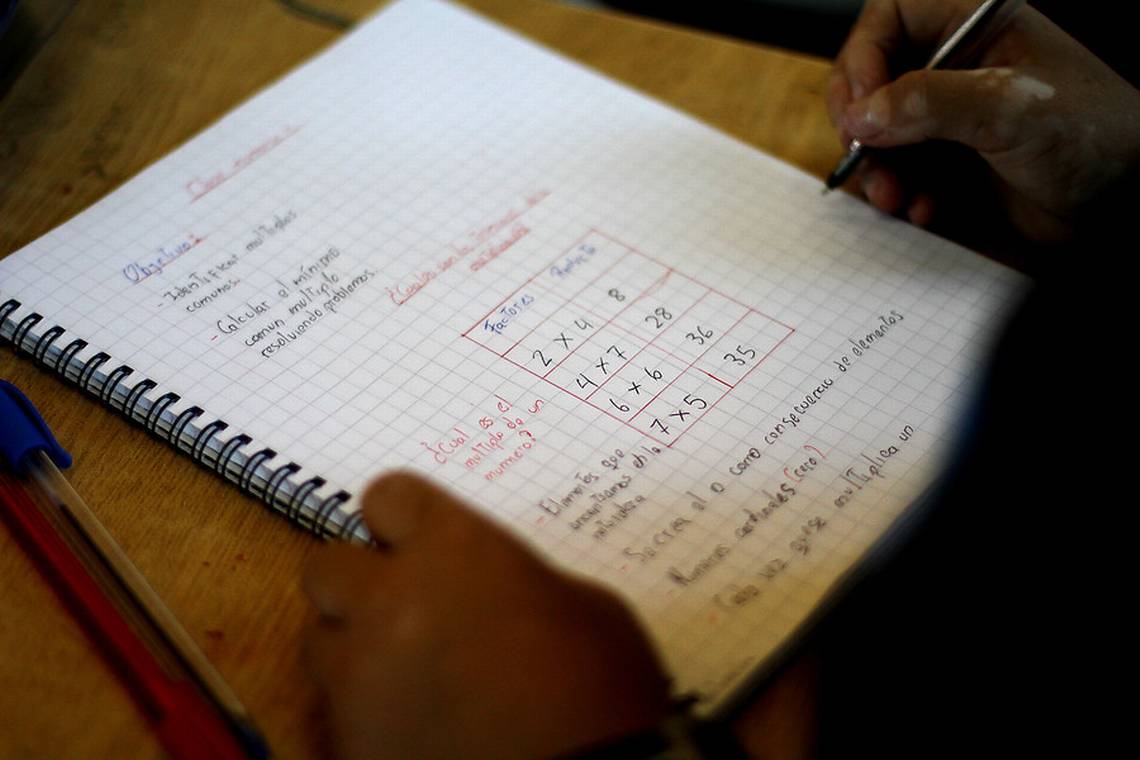 Objetivo:
- Identificar multiplos
comunes.
- Calcular el mínimo
comun multiplo
resolviendo problemas.
¿Cuales son los
Factores
2 x 4 8
4 x 7 28
6 x 6 36
7 x 5 35
¿Cual es el
multiplo de un
numero?
- Elementos que
encontramos en la
naturaleza
como consecuencia de elementos
- Numeros cardinales (cero)
- Cada vez que se multiplica un